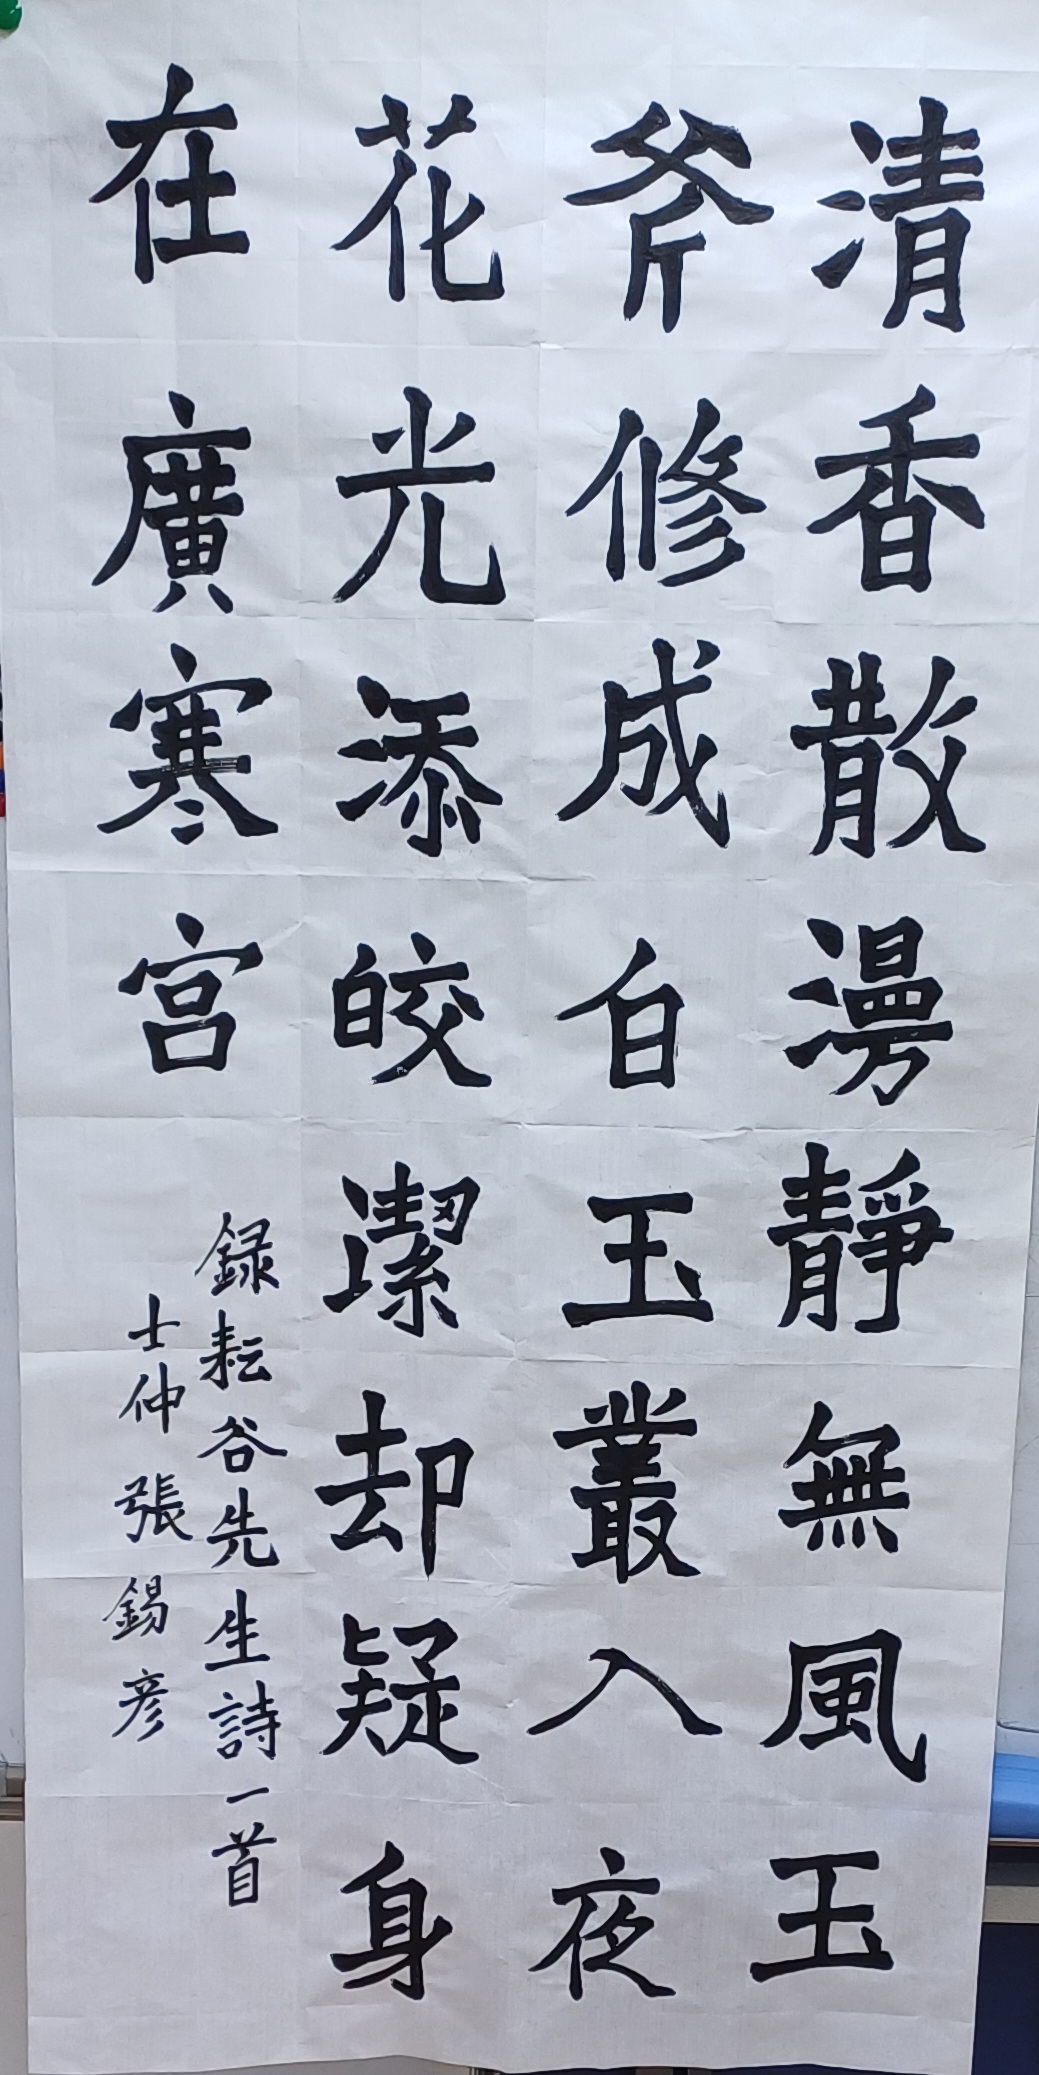 清香散漫靜無風玉
斧修成白玉叢入夜
花光添皎潔却疑身
在廣寒宮
録耘谷先生詩一首
士仲張錫彦